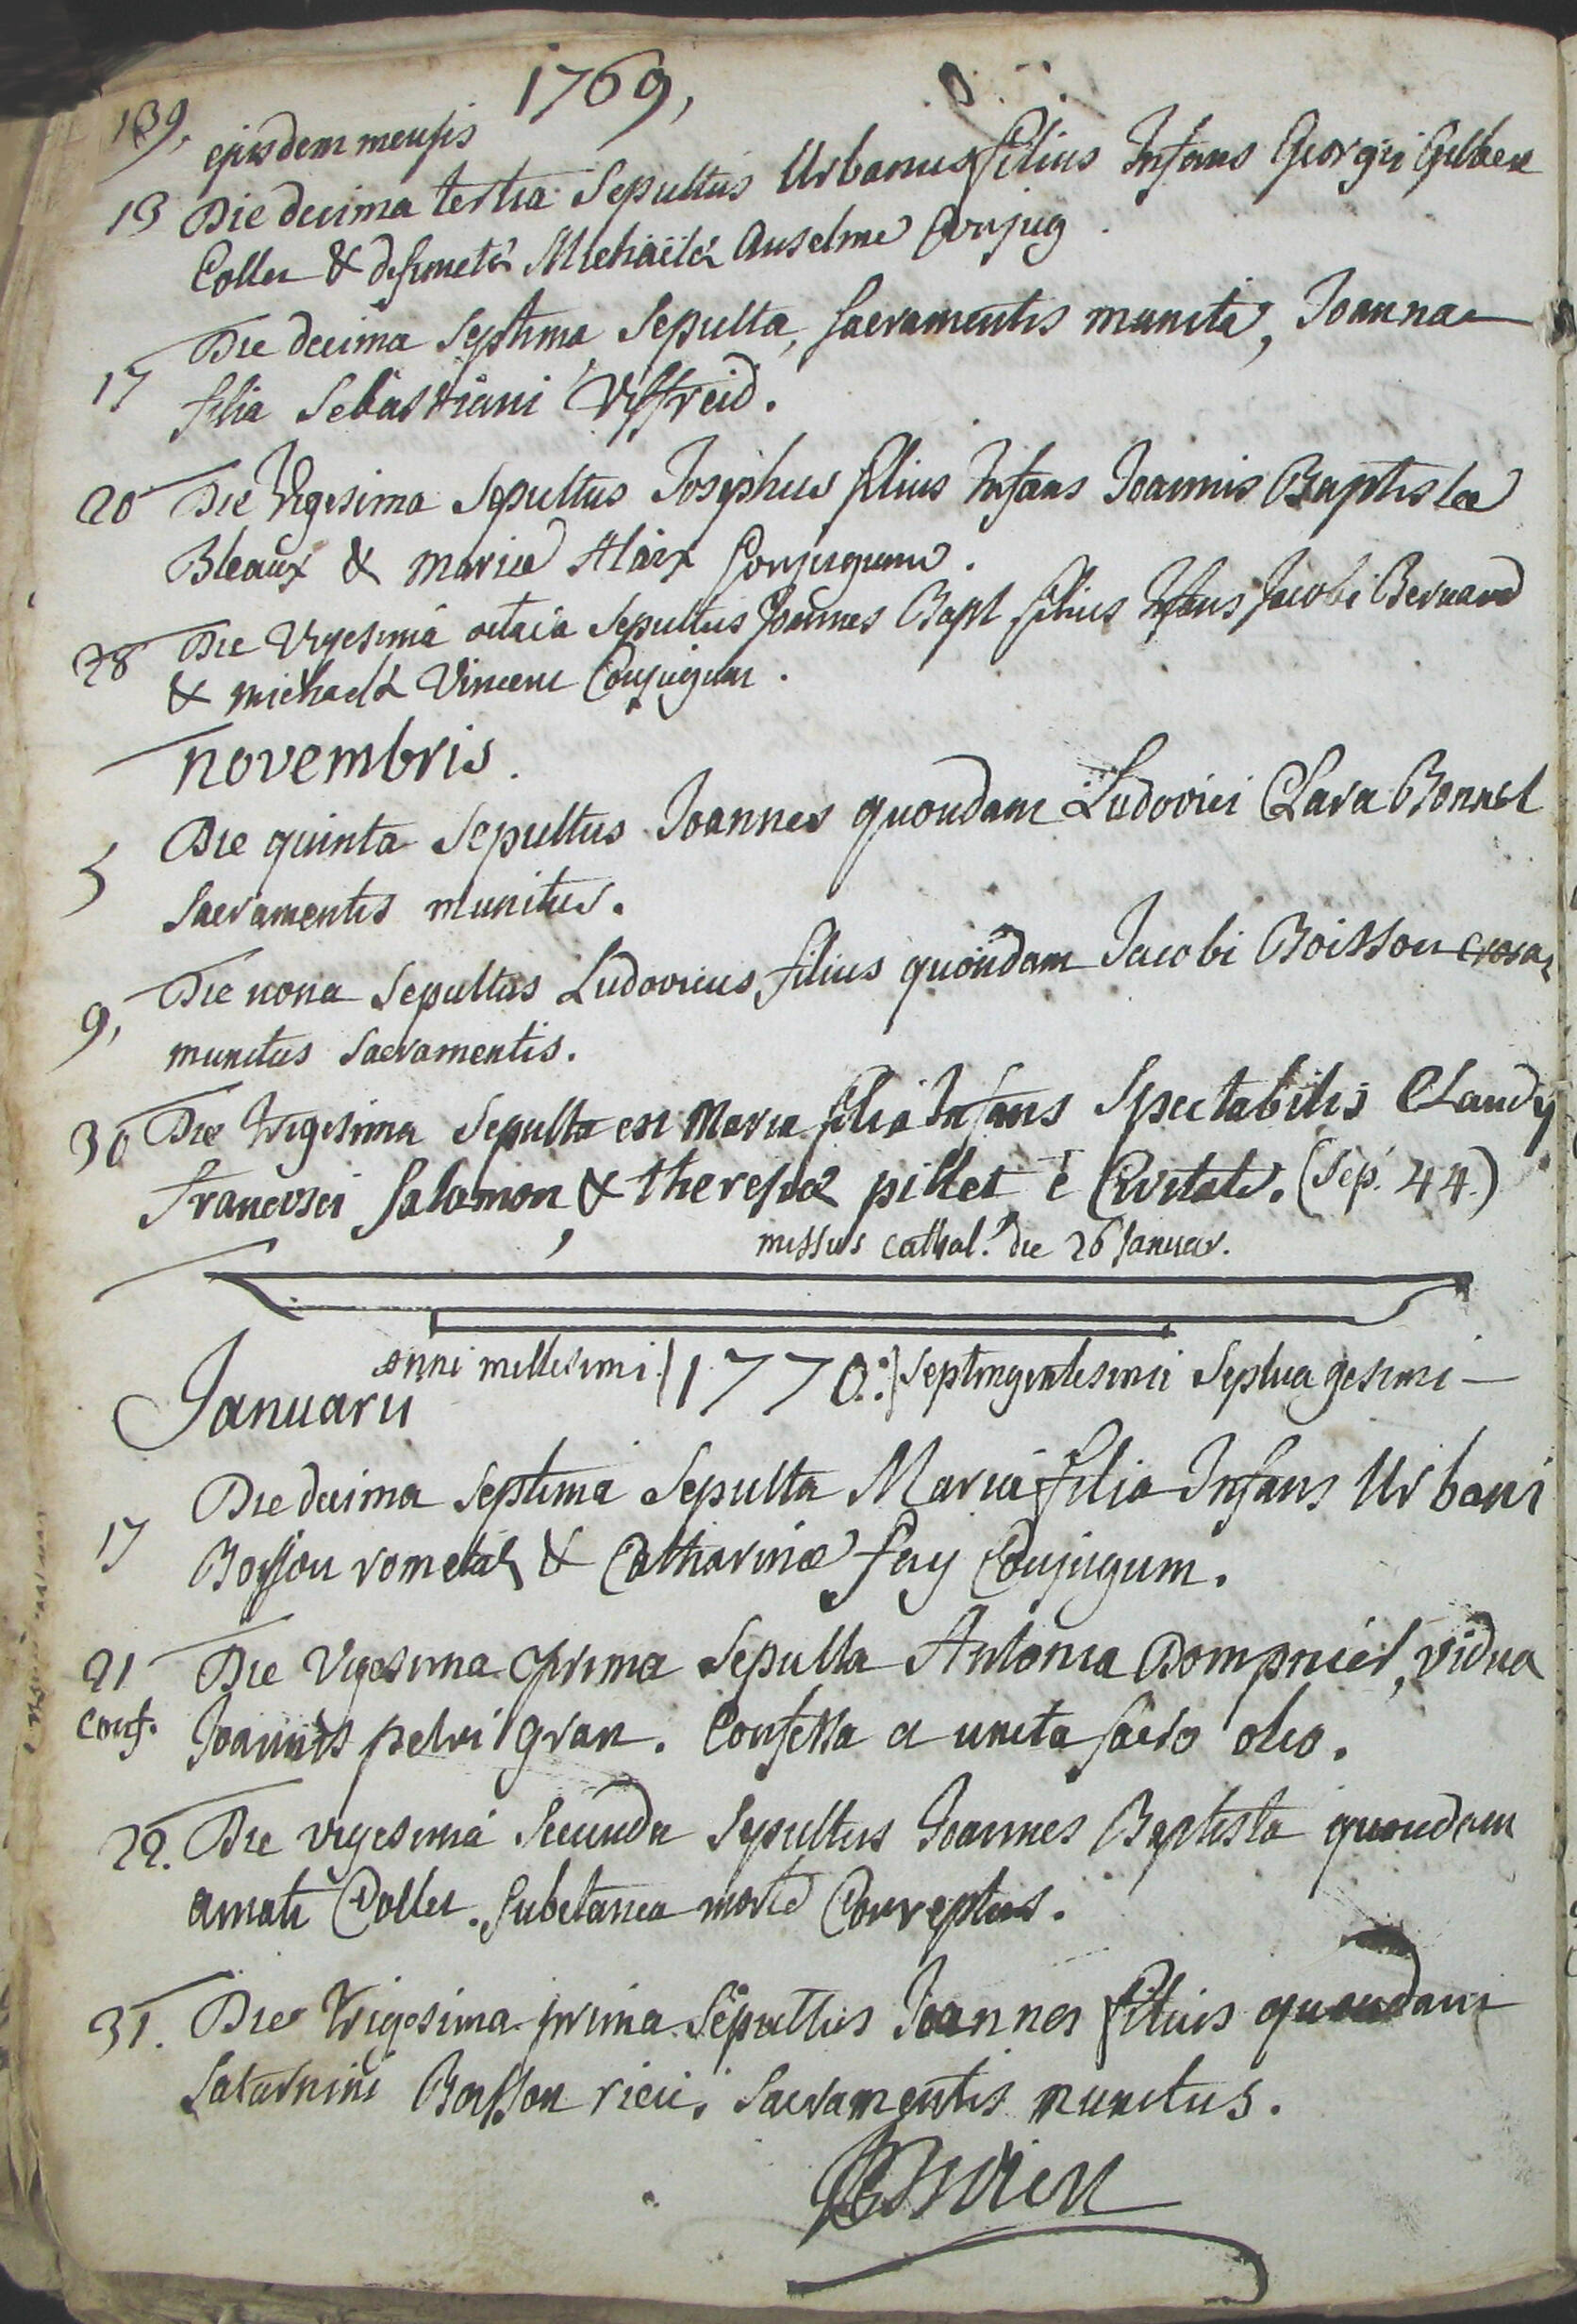 1769,
139,
ejusdem mensis
13 Die decima tertia Sepultus Urbanus filius Infans Georgii Gilbert
Collet & defunctæ Michaëlæ Anselme Conjug.
17 Die decima Septima Sepulta, Sacramentis munita, Joanna
filia Sebastiani Viffreid.
20 Die Vigesima Sepultus Josephus filius Infans Joannis Baptistæ
Bleaux & mariæ Alaix Conjugum.
28 Die Vigesima octava Sepultus Joannes Bapt filius Infans Jacobi Bernard
& michaelæ Vincent Conjugum.
novembris.
5 Die quinta Sepultus Joannes quondam Ludovici Clara Bonnet
Sacramentis munitus.
9, Die nona Sepultus Ludovicus filius quondam Jacobi Boisson
munitus Sacramentis.
30 Die Trigesima Sepulta est Maria filia Infans Spectabilis Claudy
francisci Salomon, & theresiæ pillet è Civitate. (Sep. 44.)
missus cathal. die 26 Januar.
anni millesimi 1770: Septingentesimi Septuagesimi
Januarii
17 Die decima Septima Sepulta Maria filia Infans Urbani
Boisson rometal & Catharinæ fay Conjugum.
21 Die Vigesima prima Sepulta Antonia Dompnier, vidua
conf. Joannis petri gran. Confessa et uncta sacro oleo.
22. Die vigesima Secunda Sepultus Joannes Baptista quondam
amati Collet. Subitanea morte Correptus.
31. Die Trigesima prima Sepultus Joannes filius quondam
Saturnini Boisson ricii. Sacramentis munitus.